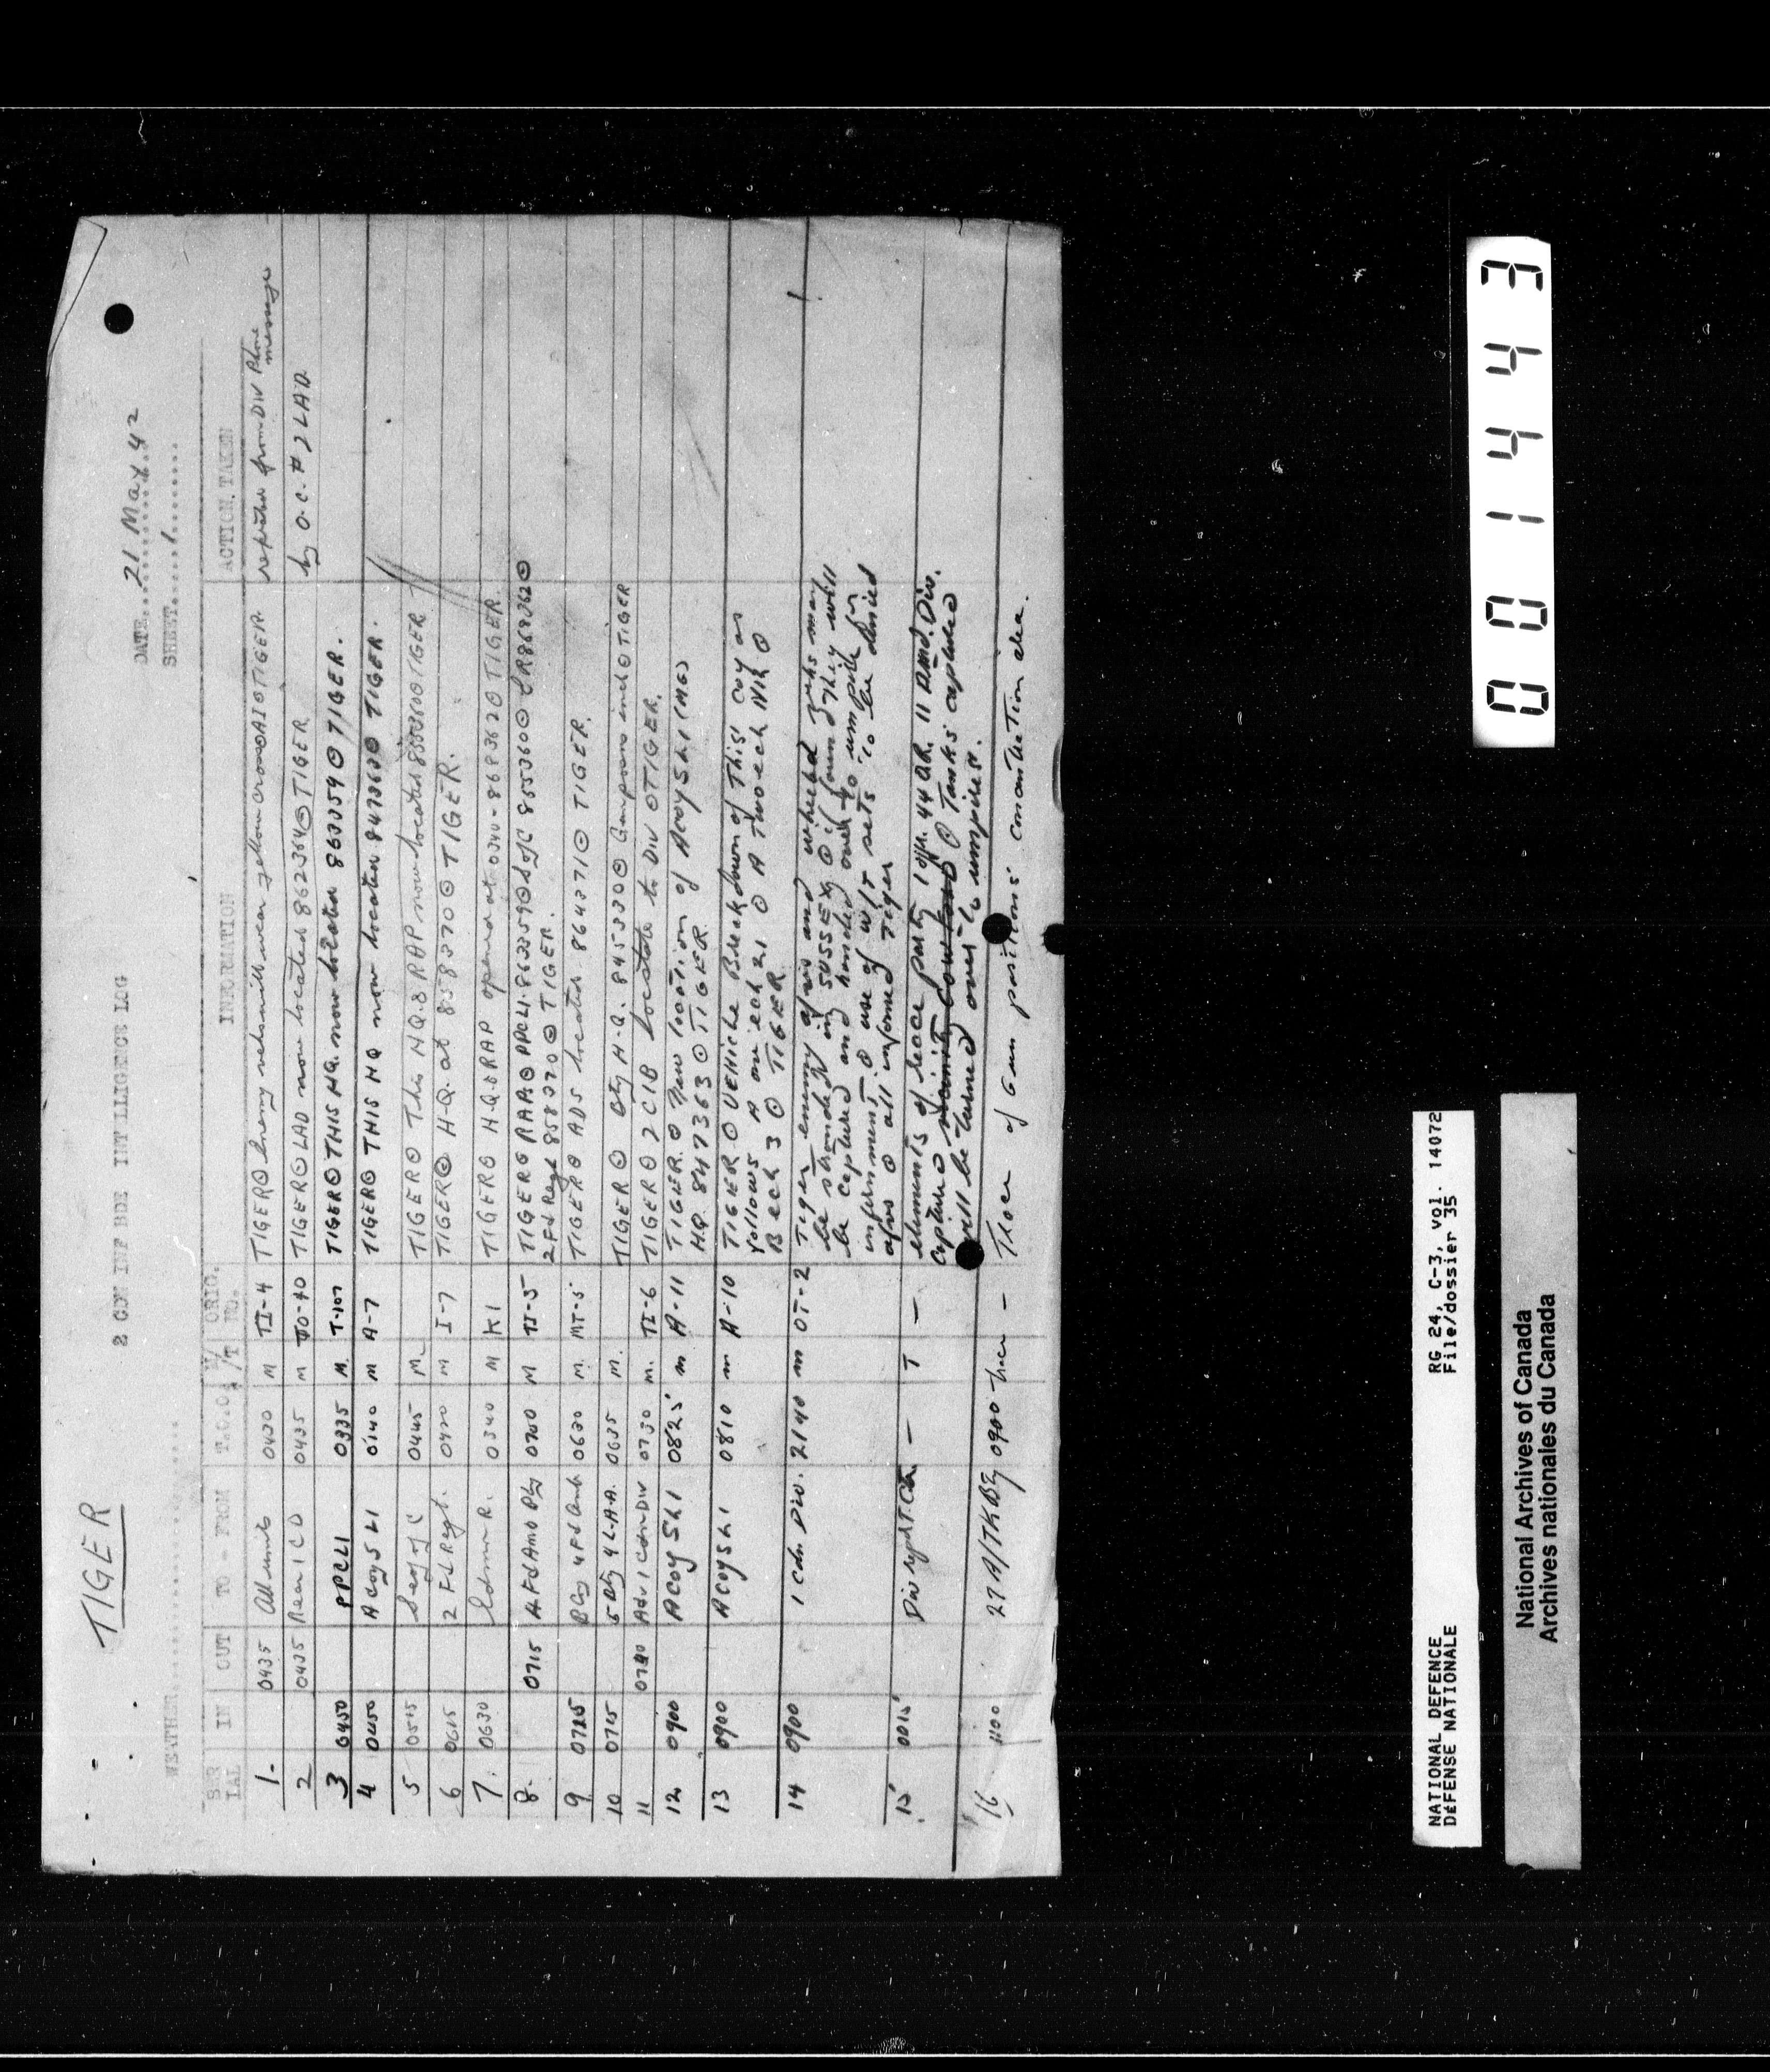 TIGER
2 CDN INF BDE INTELLIGENCE LOG
DATE 21 May 42
SHEET 1
WEATHER
SERIAL IN OUT TO - FROM T.O.O. W/T ORIG. NO. INFORMATION ACTION TAKEN
1. 0435 All units 0430 M TI-4 TIGER ⊙ Enemy vehs will wear yellow cross ⊙ AI ⊙ TIGER. from DIV Phone message
2 0435 Rear 1 CD 0435 M TO-40 TIGER ⊙ LAD now located 862364 ⊙ TIGER by O.C. # 2 LAD.
3 0450 PPCLI 0335 M. T-107 TIGER ⊙ THIS HQ. now located 863359 ⊙ TIGER.
4 0450 A Coy SLI 0140 M A-7 TIGER ⊙ THIS HQ now located 847363 ⊙ TIGER.
5 0515 Seaf of C 0445 M TIGER ⊙ This HQ. & RAP now located ⊙ TIGER
6 0615 2 Fd Regt. 0420 M I-7 TIGER ⊙ H-Q. at 858370 ⊙ TIGER.
7. 0630 Edmn R. 0340 M K1 TIGER ⊙ H.Q. & RAP opened at 0340 - 868362 ⊙ TIGER.
8. 0715 4 Fd Amb 0700 M TI-5 TIGER ⊙ RAPS ⊙ PPCLI. 863359 ⊙ S of C 865360 ⊙ ER 868362 ⊙
2 Fd Regt 858370 ⊙ TIGER.
9 0725 B Coy 4 Fd Amb 0630 M. MT-5 TIGER ⊙ ADS located 864371 ⊙ TIGER.
10 0715 5 Bty 4 L.A.A. 0635 M. TIGER ⊙ Bty H.Q. 845330 ⊙ ⊙ TIGER
11 0740 Adv 1 Cdn DIV 0730 M. TI-6 TIGER ⊙ 2 CIB Locstate to DIV ⊙ TIGER.
12. 0900 A Coy SLI 0825 m A-11 TIGER. ⊙ New location of A Coy SLI (MG)
H.Q. 847363 ⊙ TIGER
13 0900 A Coy SLI 0810 m A-10 TIGER ⊙ VEHICLE Breakdown of This coy as
follows A one ech 21 ⊙ A Two ech Nil ⊙
B ech 3 ⊙ TIGER
14 0900 1 Cdn Div. 2140 m OT-2 Tiger enemy and wheeled vehs may
be stranded in SUSSEX ⊙ if found they will
be captured and handed over to umpire for
internment ⊙ use of W/T sets to be denied
⊙ all informed Tiger
15 0015 Div — T — elements of recce party 1 offr. 44 O.R. 11 Armd. Div.
captured ⊙ Tanks captured
will be turned over to umpires.
16 1100 27 A/TK Bty 0900 — Trace of Gun positions concentration area.
0 0 1 4 4 3
NATIONAL DEFENCE RG 24, C-3, vol. 14072
DÉFENSE NATIONALE File/dossier 35
National Archives of Canada
Archives nationales du Canada